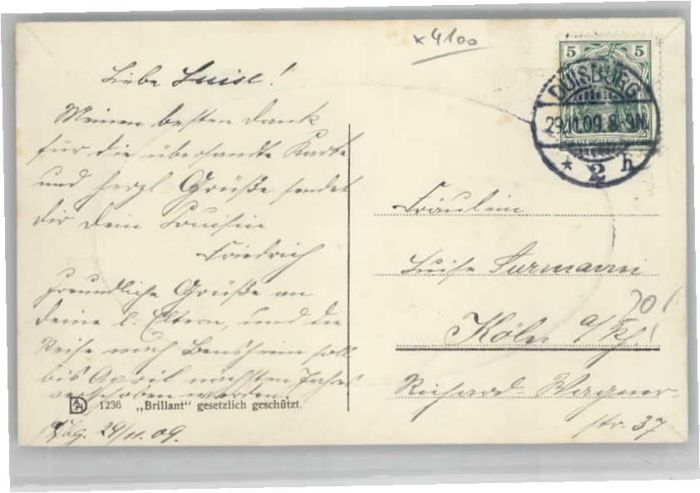 x 4100
5 5
DUISBURG
29.11.09. 8-9N.
* 2 h
Liebe Luise!
Meinen besten Dank
für die übersandte Karte
und herzl. Grüße sendet
dir dein Cousin
Friedrich
Freundliche Grüße an
deine l. Eltern, und die
Reise nach Bensheim soll
bis April nächsten Jahres
verschoben werden.
1236 „Brillant“ gesetzlich geschützt.
Dbg. 29/11. 09.
Fräulein
Luise Surmann
Köln a/Rh.
Richard-Wagner-
str. 37